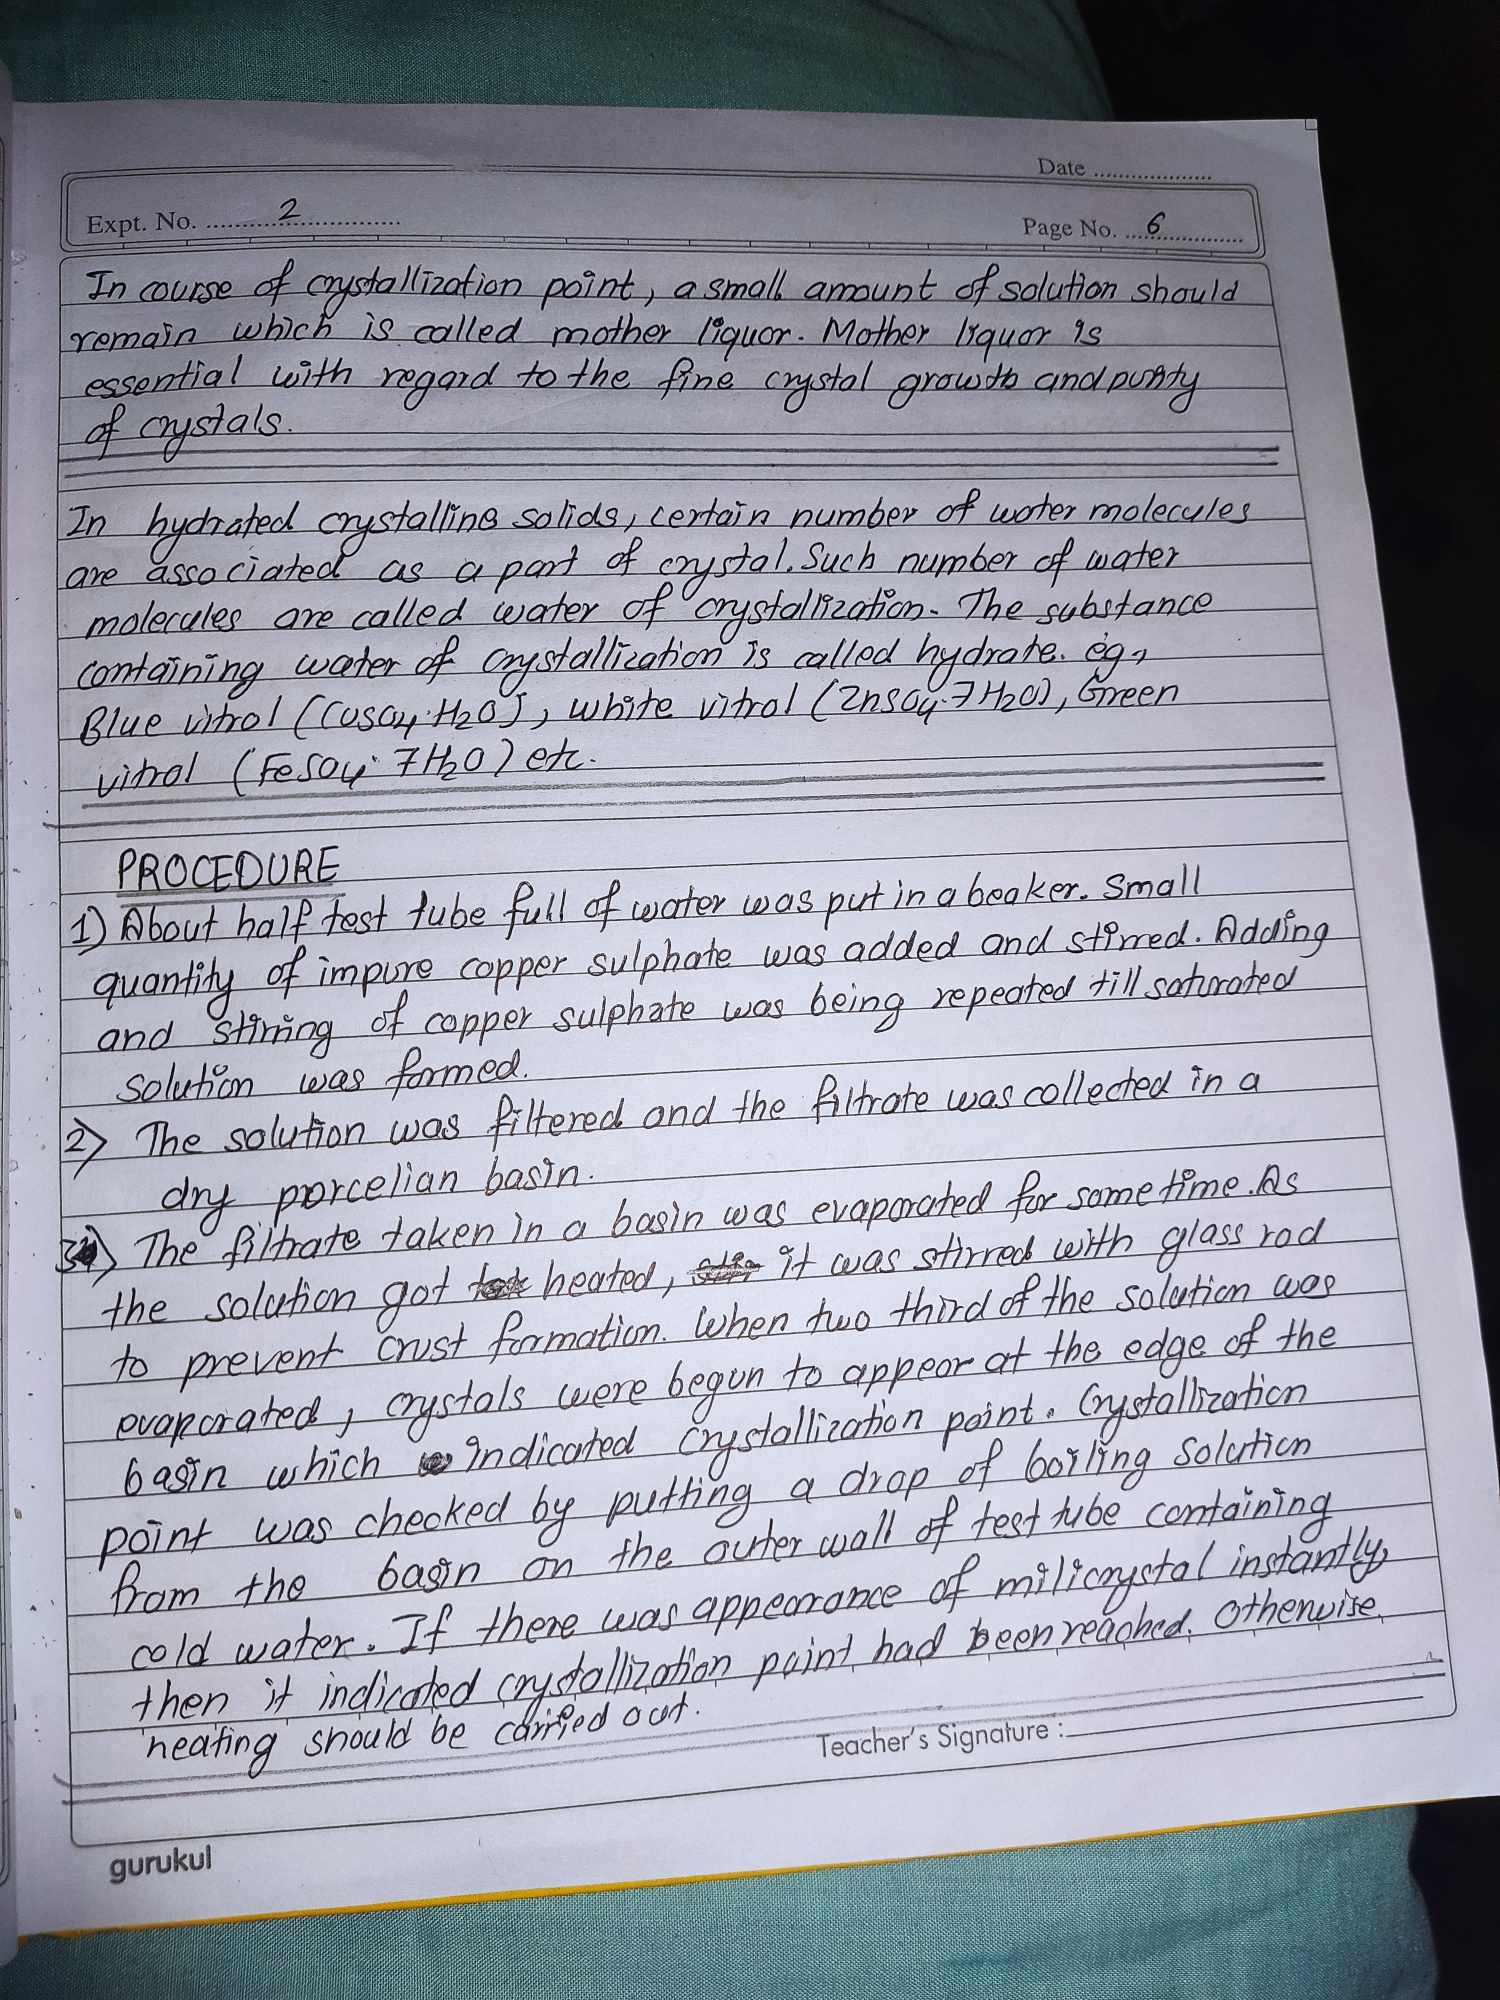 Date ....................
Expt. No. ........2..............
Page No. ...6..............
In course of crystallization point, a small amount of solution should
remain which is called mother liquor. Mother liquor is
essential with regard to the fine crystal growth and purity
of crystals.
In hydrated crystalline solids, certain number of water molecules
are associated as a part of crystal. Such number of water
molecules are called water of crystallization. The substance
containing water of crystallization is called hydrate. eg,
Blue vitrol (CuSO4.H2O), white vitrol (ZnSO4.7H2O), Green
vitral (FeSO4. 7H2O) etc.
PROCEDURE
1) About half test tube full of water was put in a beaker. Small
quantity of impure copper sulphate was added and stirred. Adding
and stirring of copper sulphate was being repeated till saturated
solution was formed.
2) The solution was filtered and the filtrate was collected in a
dry porcelian basin.
3) The filtrate taken in a basin was evaporated for some time. As
the solution got heated, it was stirred with glass rod
to prevent crust formation. When two third of the solution was
evaporated, crystals were begun to appear at the edge of the
basin which indicated crystallization point. Crystallization
point was checked by putting a drop of boiling solution
from the basin on the outer wall of test tube containing
cold water. If there was appearance of milicrystal instantly,
then it indicated crystallization point had been reached. Otherwise,
heating should be carried out.
Teacher's Signature :
gurukul